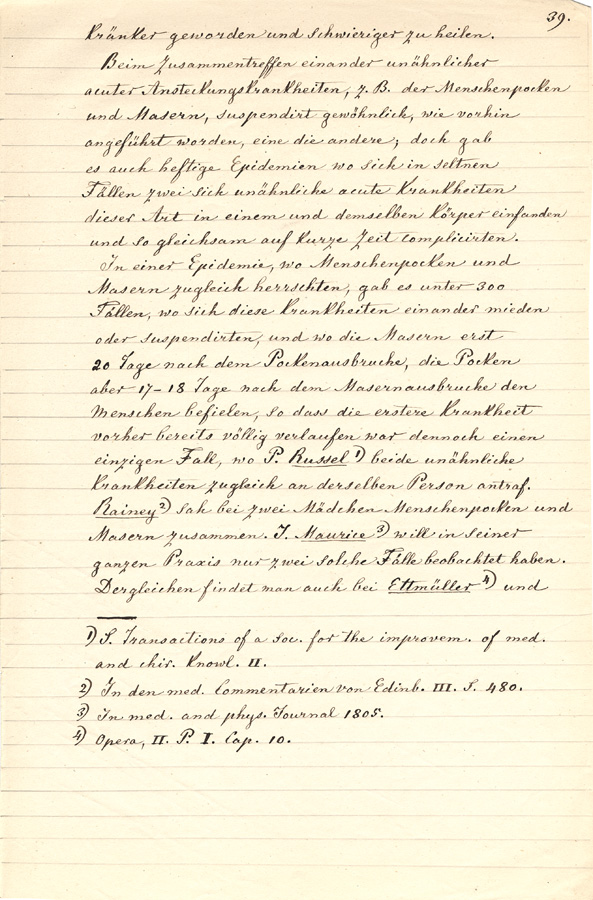 39.
kränker geworden und schwieriger zu heilen.
Beim Zusammentreffen einander unähnlicher
acuter Ansteckungskrankheiten, z. B. der Menschenpocken
und Masern, suspendirt gewöhnlich, wie vorhin
angeführt worden, eine die andere; doch gab
es auch heftige Epidemien wo sich in seltnen
Fällen zwei sich unähnliche acute Krankheiten
dieser Art in einem und demselben Körper einfanden
und so gleichsam auf kurze Zeit complicirten.
In einer Epidemie, wo Menschenpocken und
Masern zugleich herrschten, gab es unter 300
Fällen, wo sich diese Krankheiten einander mieden
oder suspendirten, und wo die Masern erst
20 Tage nach dem Pockenausbruche, die Pocken
aber 17-18 Tage nach dem Masernausbruche den
Menschen befielen, so dass die erstere Krankheit
vorher bereits völlig verlaufen war dennoch einen
einzigen Fall, wo P. Russel 1) beide unähnliche
Krankheiten zugleich an derselben Person antraf.
Rainey 2) sah bei zwei Mädchen Menschenpocken und
Masern zusammen. J. Maurice 3) will in seiner
ganzen Praxis nur zwei solche Fälle beobachtet haben.
Dergleichen findet man auch bei Ettmüller 4) und
1) S. Transactions of a soc. for the improvem. of med.
and chir. Knowl. II.
2) In den med. Commentarien von Edinb. III. S. 480.
3) In med. and phys. Journal 1805.
4) Opera, II. P. I. Cap. 10.